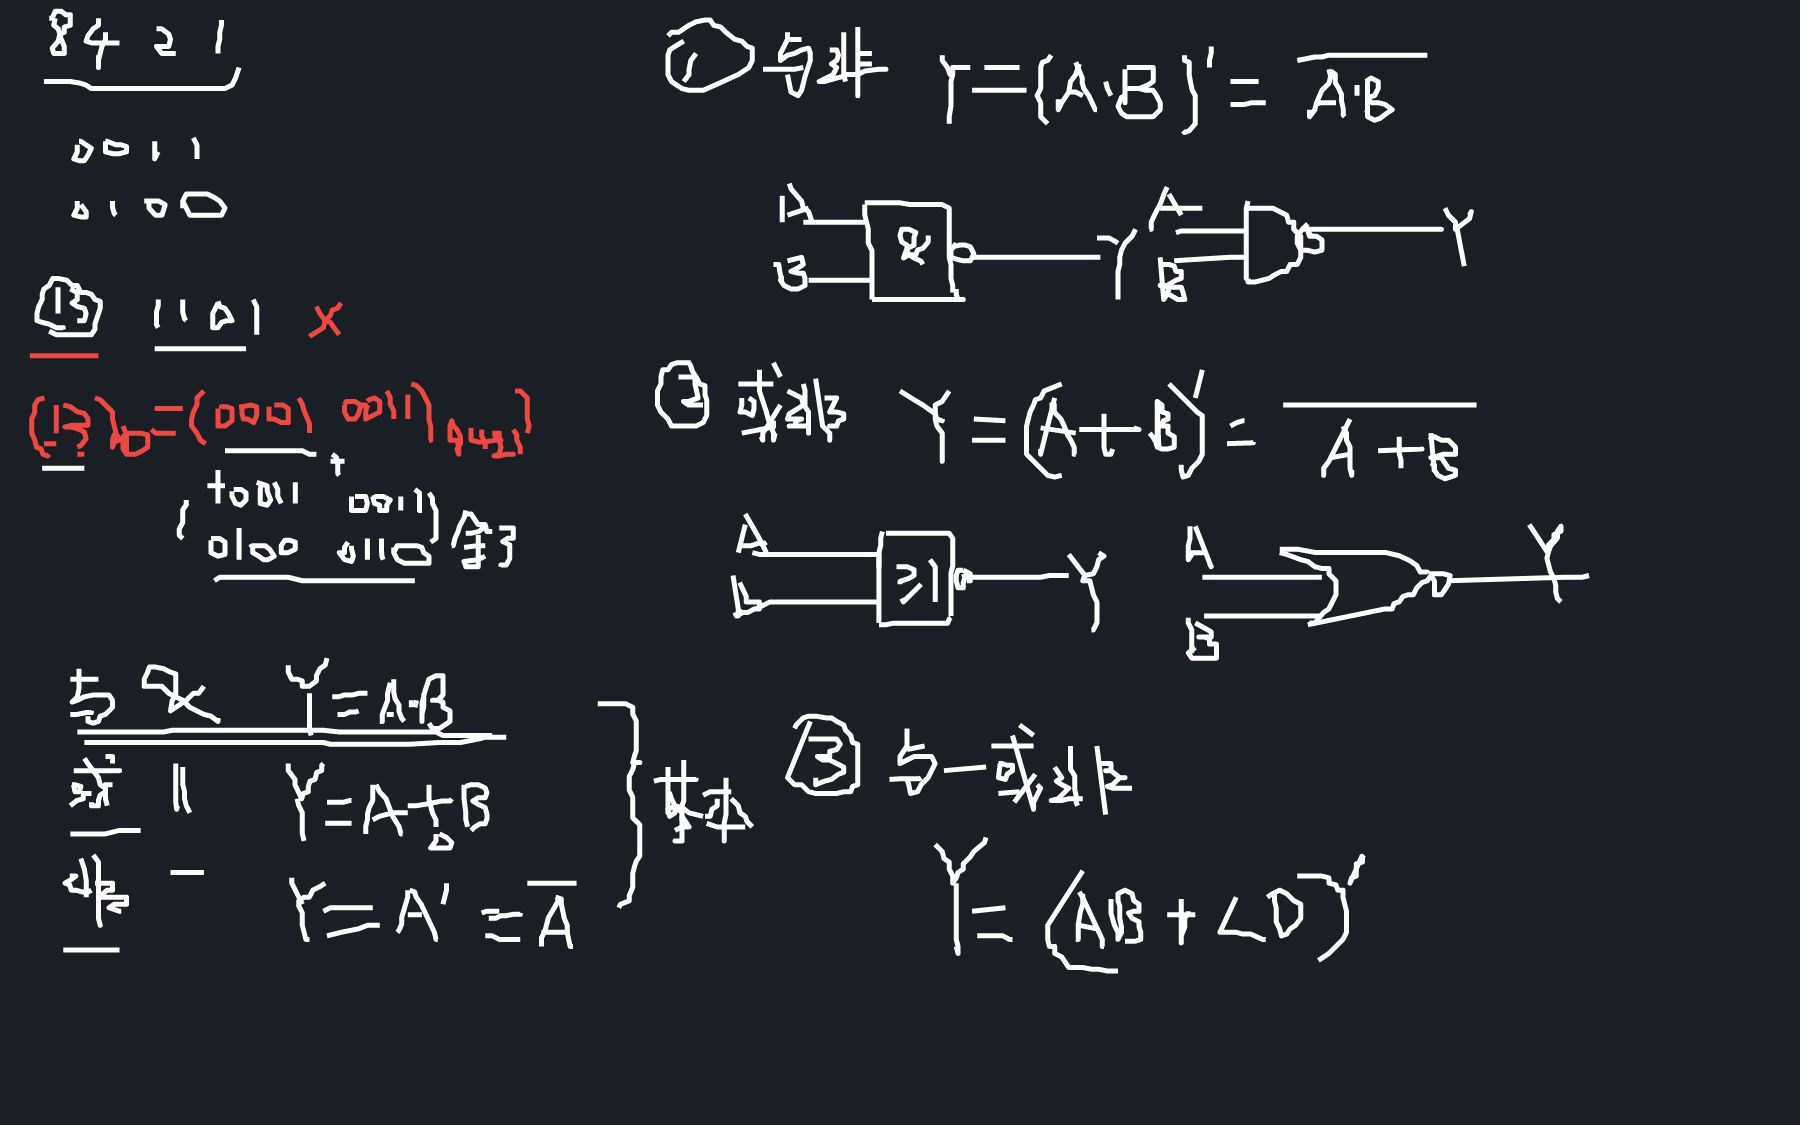 8 4 2 1
0011
0100
13 1101 ×
(13)₁₀=(0001 0011)8421
+0011 + 0011)余3
(0100 0110
与 & Y=A·B
或 || Y=A+B
非 — Y=A'=A̅
基本
① 与非 Y=(A·B)'=A̅·̅B̅
A
B
&
Y
A
B
Y
② 或非 Y=(A+B)'=A̅ ̅+̅ ̅B̅
A
≥1
Y
A
B
Y
③ 与—或非
Y=(AB+CD)'